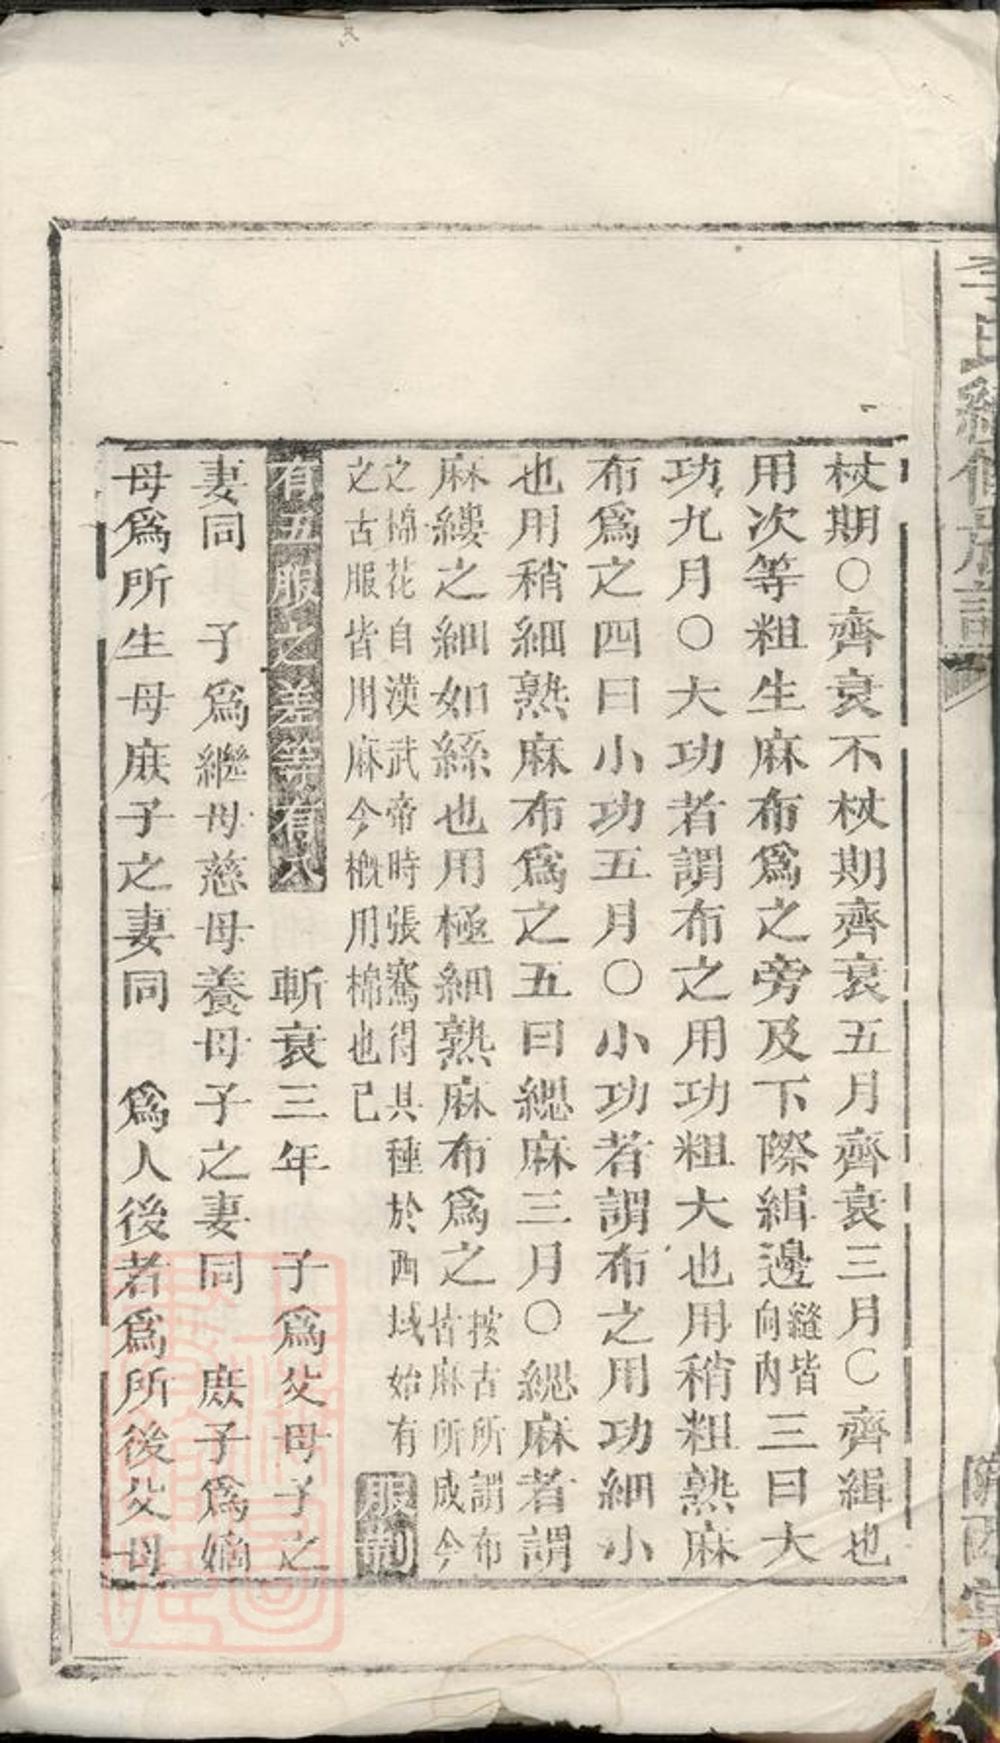 李氏續修族譜
隴西堂
杖期○齊衰不杖期齊衰五月齊衰三月○齊緝也
用次等粗生麻布爲之旁及下際緝邊縫皆向內三曰大
功九月○大功者謂布之用功粗大也用稍粗熟麻
布爲之四曰小功五月○小功者謂布之用功細小
也用稍細熟麻布爲之五曰緦麻三月○緦麻者謂
麻縷之細如絲也用極細熟麻布爲之按古所謂布皆麻所成今
之棉花自漢武帝時張騫得其種於西域始有
之古服皆用麻今概用棉也已服制
有五服之差等有八 斬衰三年 子爲父母子之
妻同 子爲繼母慈母養母子之妻同 庶子爲嫡
母爲所生母庶子之妻同 爲人後者爲所後父母